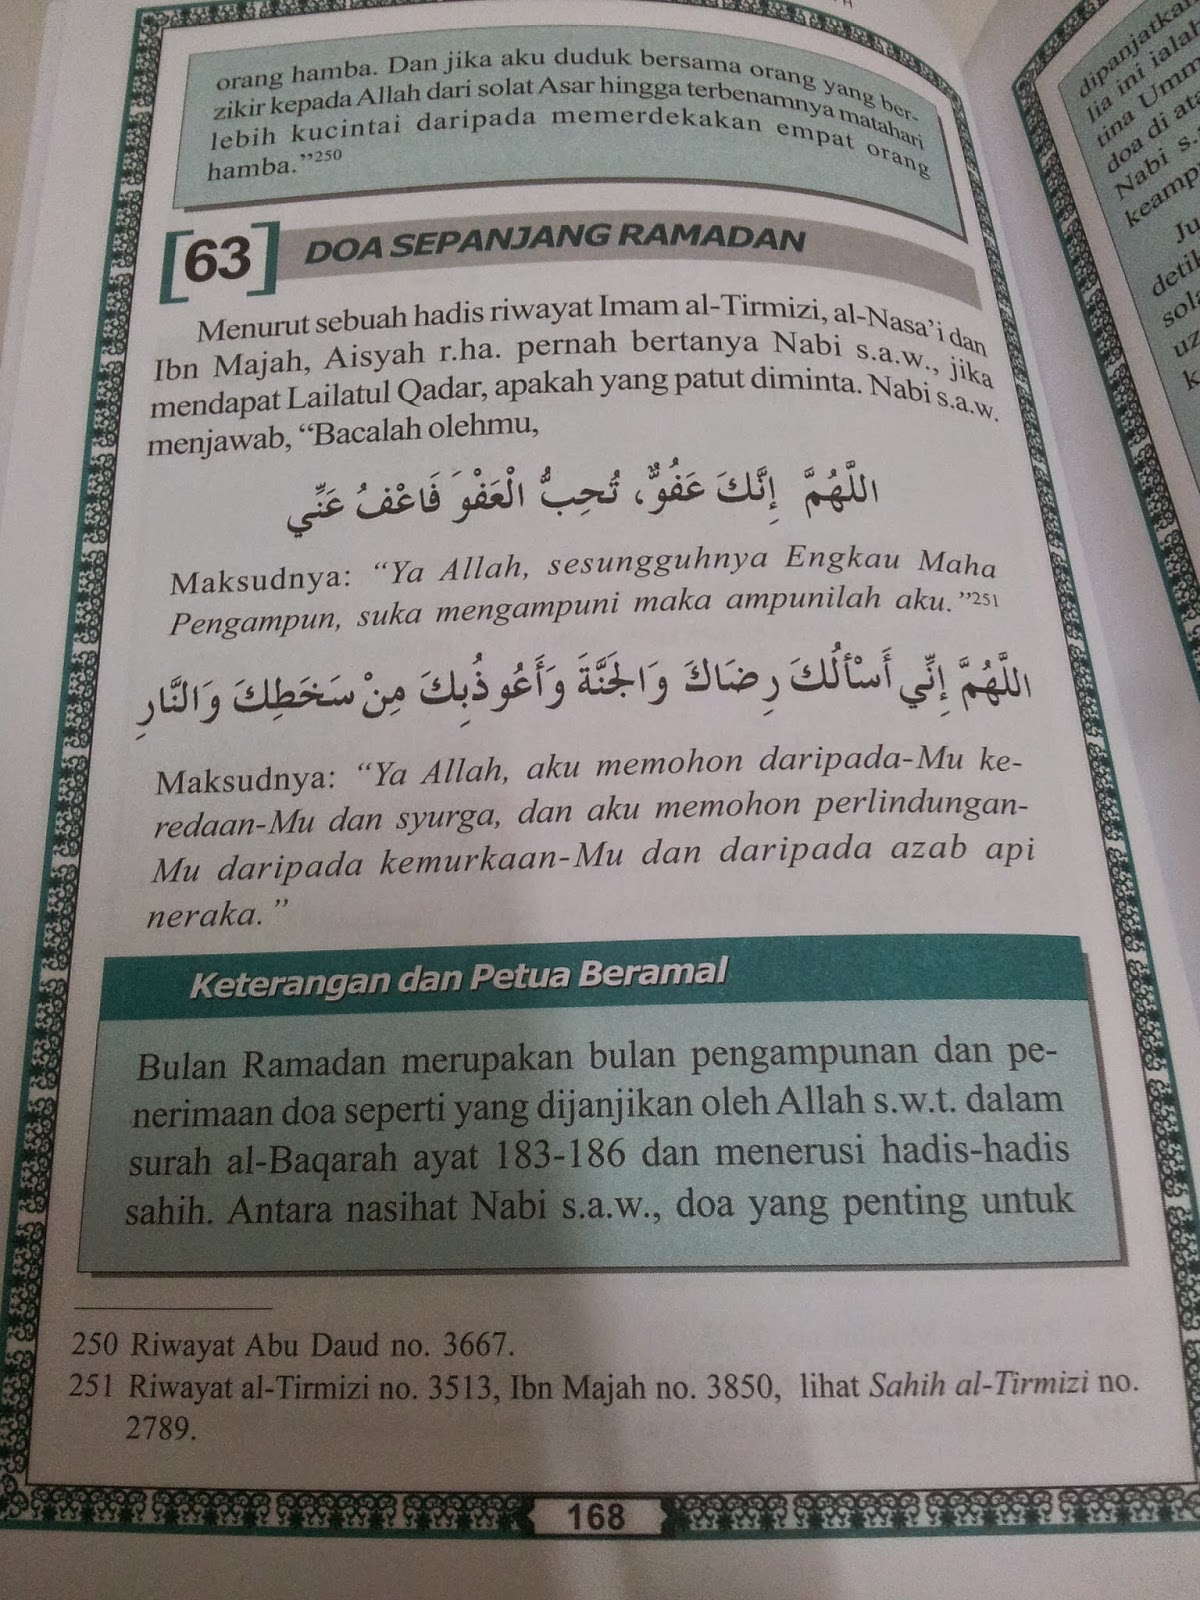 orang hamba. Dan jika aku duduk bersama orang yang ber-
zikir kepada Allah dari solat Asar hingga terbenamnya matahari
lebih kucintai daripada memerdekakan empat orang
hamba.”250
[63] DOA SEPANJANG RAMADAN
Menurut sebuah hadis riwayat Imam al-Tirmizi, al-Nasa’i dan
Ibn Majah, Aisyah r.ha. pernah bertanya Nabi s.a.w., jika
mendapat Lailatul Qadar, apakah yang patut diminta. Nabi s.a.w.
menjawab, “Bacalah olehmu,
اللَّهُمَّ إِنَّكَ عَفُوٌّ، تُحِبُّ الْعَفْوَ فَاعْفُ عَنِّي
Maksudnya: “Ya Allah, sesungguhnya Engkau Maha
Pengampun, suka mengampuni maka ampunilah aku.”251
اللَّهُمَّ إِنِّي أَسْأَلُكَ رِضَاكَ وَالجَنَّةَ وَأَعُوذُبِكَ مِنْ سَخَطِكَ وَالنَّارِ
Maksudnya: “Ya Allah, aku memohon daripada-Mu ke-
redaan-Mu dan syurga, dan aku memohon perlindungan-
Mu daripada kemurkaan-Mu dan daripada azab api
neraka.”
Keterangan dan Petua Beramal
Bulan Ramadan merupakan bulan pengampunan dan pe-
nerimaan doa seperti yang dijanjikan oleh Allah s.w.t. dalam
surah al-Baqarah ayat 183-186 dan menerusi hadis-hadis
sahih. Antara nasihat Nabi s.a.w., doa yang penting untuk
250 Riwayat Abu Daud no. 3667.
251 Riwayat al-Tirmizi no. 3513, Ibn Majah no. 3850, lihat Sahih al-Tirmizi no.
2789.
168
dipanjatkan
lia ini ialah
tina Umm
doa di ata
Nabi s.
keamp
Ju
detik
sola
uz
k